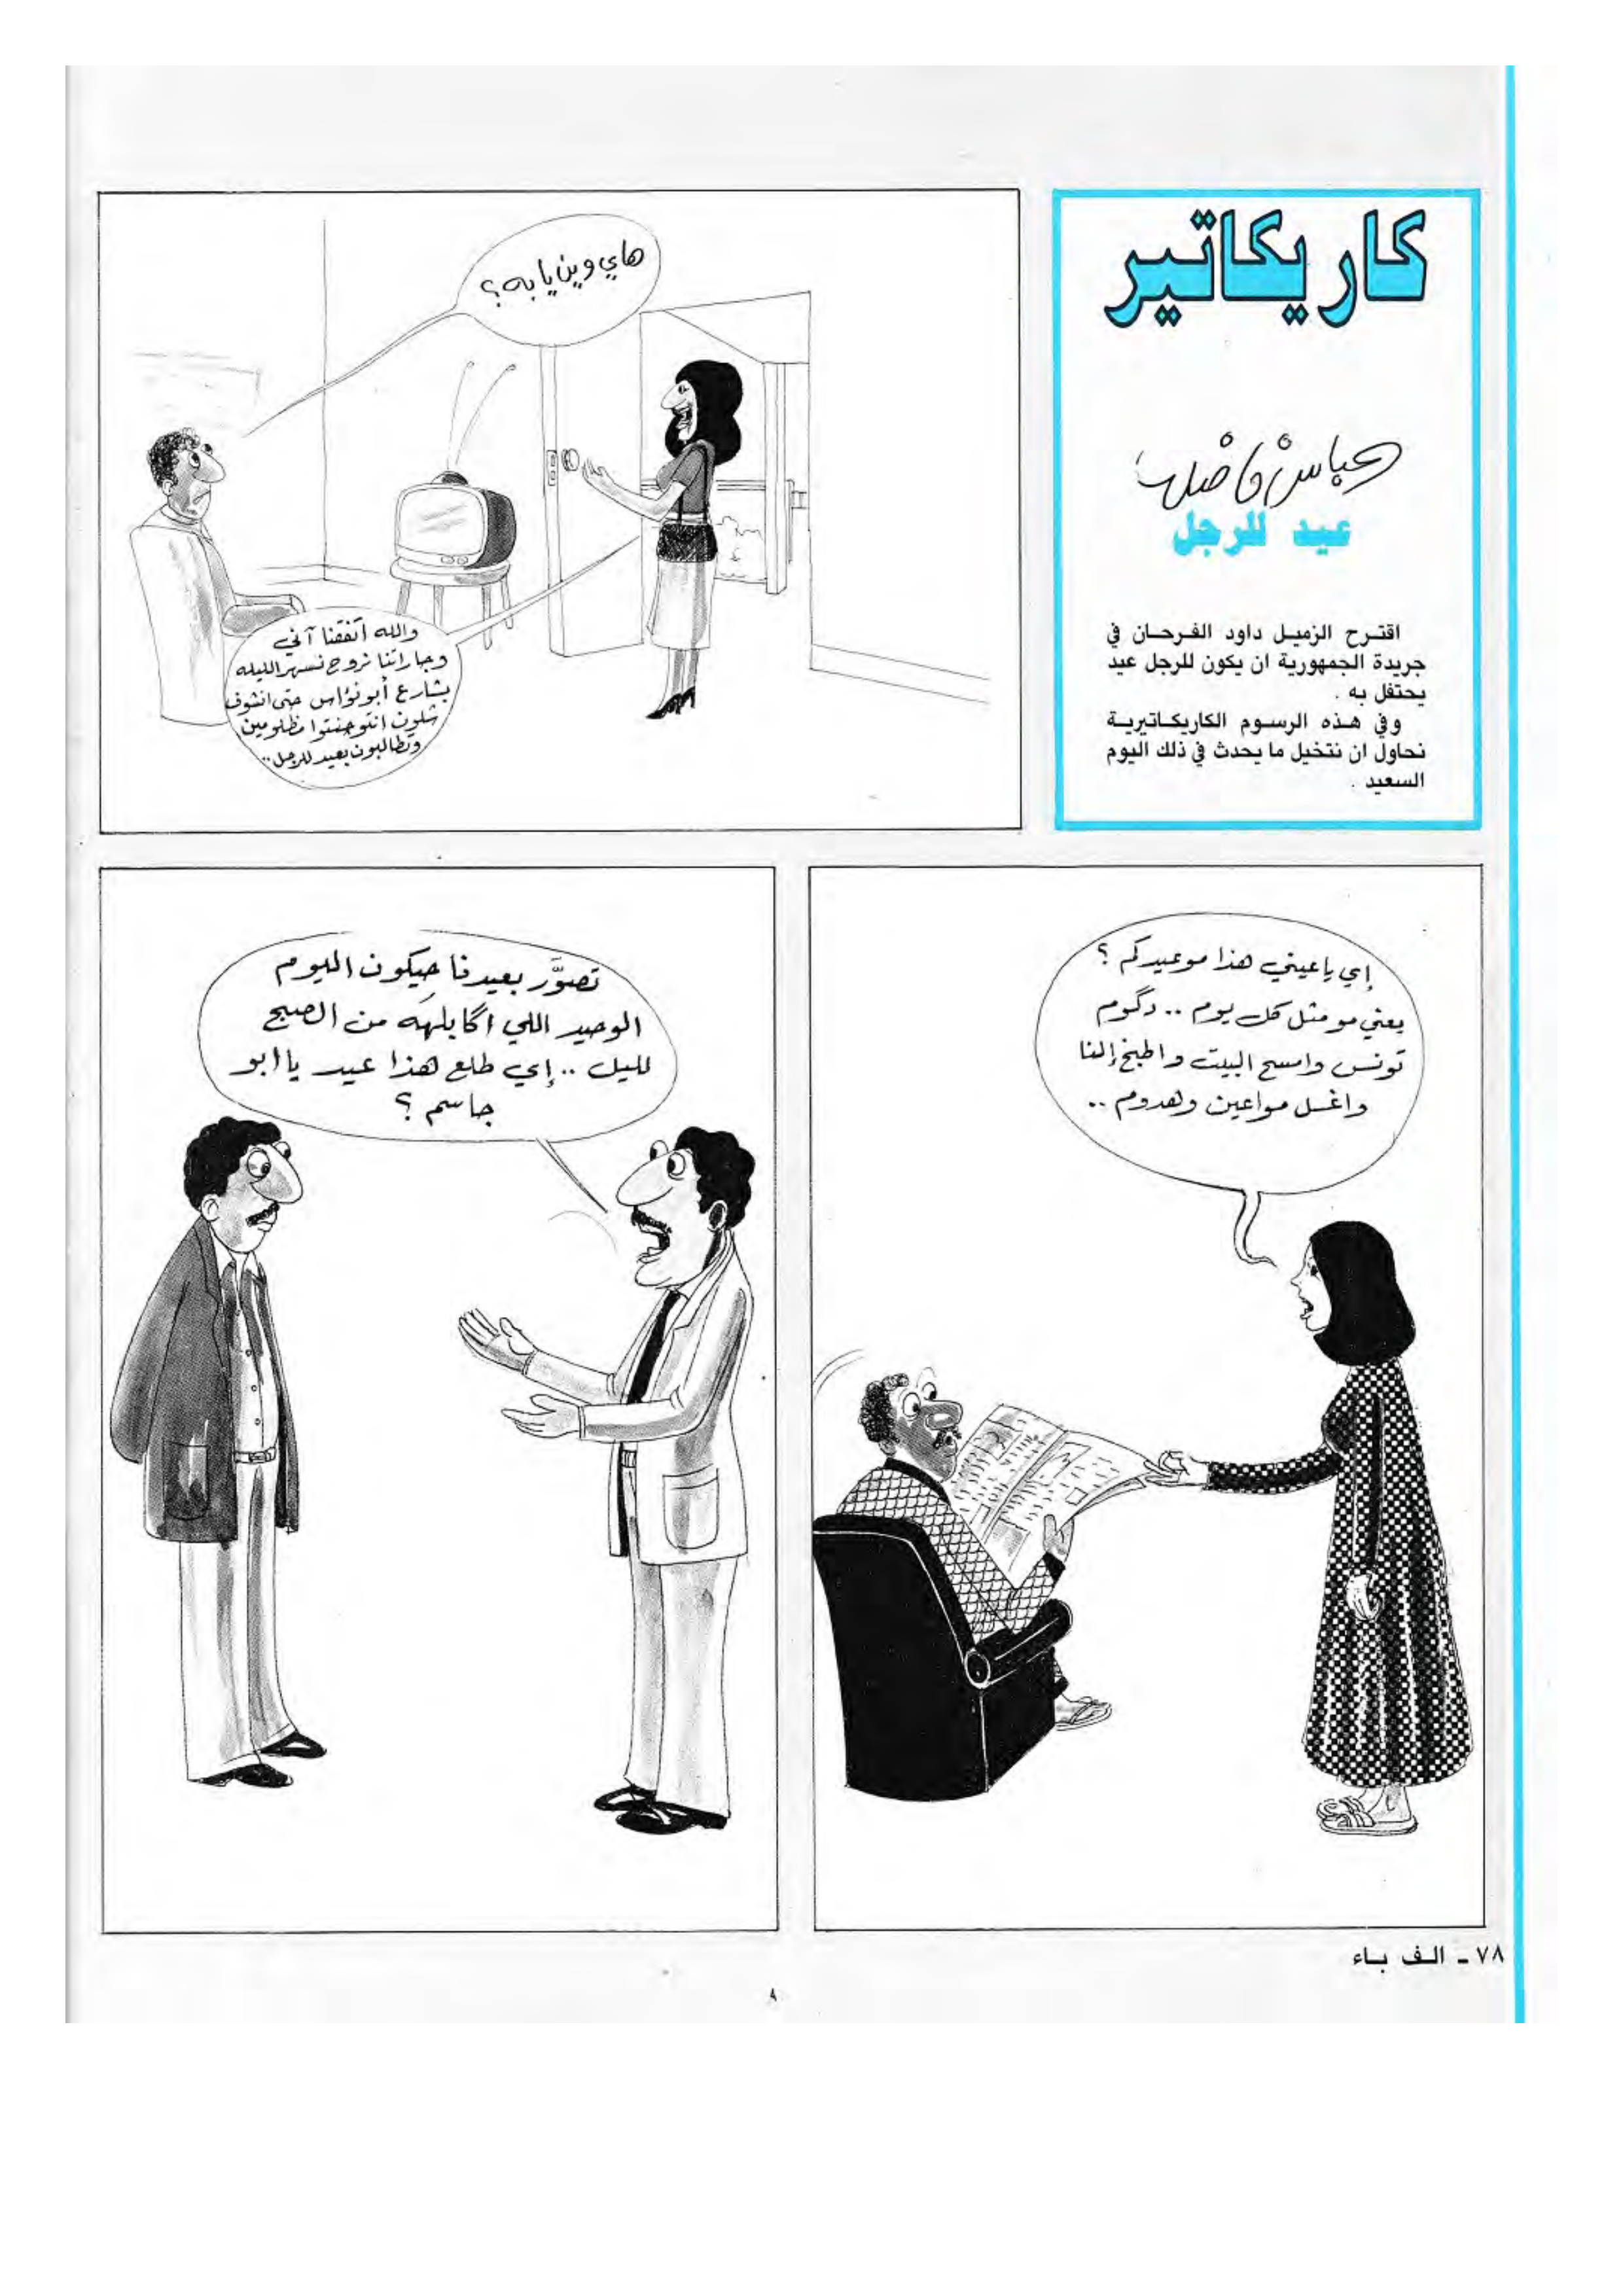 كاريكاتير
عباس فاضل
عيد للرجل
اقترح الزميل داود الفرحان في
جريدة الجمهورية ان يكون للرجل عيد
يحتفل به .
وفي هذه الرسوم الكاريكاتيرية
نحاول ان نتخيل ما يحدث في ذلك اليوم
السعيد .
هاي وين يابه ؟
والله اتفقنا آني
وجاراتنا نروح نسهر الليله
بشارع أبو نؤاس حتى انشوف
شلون انتو چنتوا مظلومين
وتطالبون بعيد للرجل ..
إي ياعيني هذا مو عيدكم ؟
يعني مو مثل كل يوم .. دگوم
تونس وامسح البيت واطبخ إلنا
واغسل مواعين وهدوم ..
تصوَّر بعيدنا حيكون اليوم
الوحيد اللي اگابلهَه من الصبح
لليل .. إي طلع هذا عيد يا ابو
جاسم ؟
٧٨ - الف باء
٨